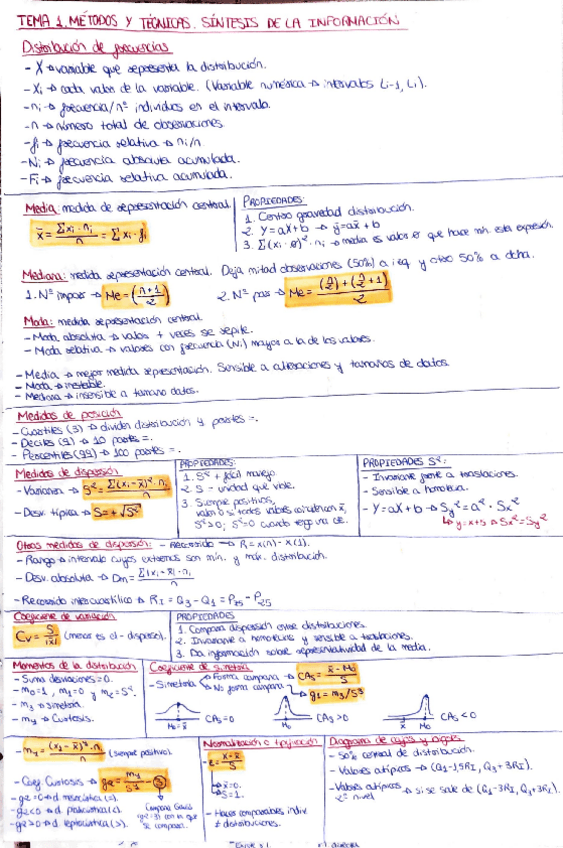 TEMA 1. MÉTODOS Y TÉCNICAS. SÍNTESIS DE LA INFORMACIÓN
Distribución de frecuencias
- X → variable que representa la distribución.
- Xi → cada valor de la variable. (Variable numérica → intervalos Li-1, Li).
- ni → frecuencia/nº individuos en el intervalo.
- n → número total de observaciones.
- fi → frecuencia relativa → ni/n.
- Ni → frecuencia absoluta acumulada.
- Fi → frecuencia relativa acumulada.
Media: medida de representación central
x̄ = Σxi·ni / n = Σxi·fi
PROPIEDADES:
1. Centro gravedad distribución.
2. Y = aX + b → ȳ = ax̄ + b
3. Σ(xi - θ)²·ni → media es valor θ que hace mín. esta expresión.
Mediana: medida representación central. Deja mitad observaciones (50%) a izq. y otro 50% a dcha.
1. Nº impar → Me = (n+1 / 2)
2. Nº par → Me = (n/2) + (n/2 + 1) / 2
Moda: medida representación central
- Moda absoluta → valor + veces se repite.
- Moda relativa → valores con frecuencia (Ni) mayor a la de los valores.
- Media → mejor medida representación. Sensible a alteraciones y tamaños de datos.
- Moda → inestable.
- Mediana → insensible a tamaño datos.
Medidas de posición
- Cuartiles (3) → dividen distribución 4 partes =.
- Deciles (9) → 10 partes =.
- Percentiles (99) → 100 partes =.
Medidas de dispersión
- Varianza → S² = Σ(xi - x̄)²·ni / n
- Desv. típica → S = +√S²
PROPIEDADES:
1. S² + fácil manejo.
2. S - unidad que vble.
3. Siempre positivos,
valor 0 si todos valores coinciden x̄,
S² > 0; S² = 0 cuando
PROPIEDADES S²:
- Invariante frente a traslaciones.
- Sensible a homotecia.
- Y = aX + b → Sy² = a²·Sx²
↳ y = x + b → Sx² = Sy²
Otras medidas de dispersión: - Recorrido → R = x(n) - x(1).
- Rango → intervalo cuyos extremos son mín. y máx. distribución.
- Desv. absoluta → Dm = Σ|xi - x̄|·ni / n
- Recorrido intercuartílico → RI = Q3 - Q1 = P75 - P25
Coeficiente de variación
Cv = S / |x̄| (menor es el - disperso).
PROPIEDADES
1. Compara dispersión entre distribuciones.
2. Invariante a homotecias y sensible a traslaciones.
3. Da información sobre representatividad de la media.
Momentos de la distribución
- Suma desviaciones = 0.
- m0 = 1, m1 = 0 y m2 = S².
- m3 → simetría.
- m4 → Curtosis.
Coeficiente de simetría
- Simetría
Forma campana → CAs = x̄ - Mo / S
No forma campana → g1 = m3/S³
CAs = 0
CAs > 0
CAs < 0
Mo = x̄
Mo
x̄ Mo
- m4 = (xi - x̄)⁴·ni / n (siempre positivo).
- Coef. Curtosis → g2 = m4 / S⁴ - 3
- g2 = 0 → d. mesocúrtica (=).
- g2 < 0 → d. platicúrtica (<).
- g2 > 0 → d. leptocúrtica (>).
Campana Gauss
(g2 = 3) con la que
se compara.
Normalización o tipificación
- z = x - x̄ / S
x̄ = 0.
S = 1.
- Hacer comparables indiv.
≠ distribuciones.
Diagrama de cajas y bigotes
- 50% central de distribución.
- Valores atípicos → (Q1 - 1,5RI, Q3 + 3RI).
- Valores atípicos → si se sale de (Q1 - 3RI, Q3 + 3RI).
2º nivel